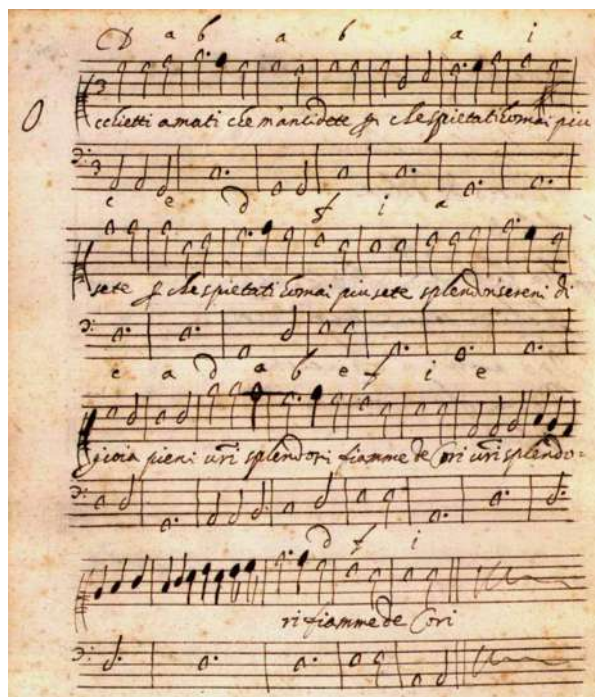 D a b a b a i
O
cchietti amati che m'ancidete che spietati homai piu
c e d f i a
sete che spietati homai piu sete splendori sereni di
e a d a b e f i e
gioia pieni vri splendori fiamme de Cori vri splendo=
d f i
ri fiamme de Cori